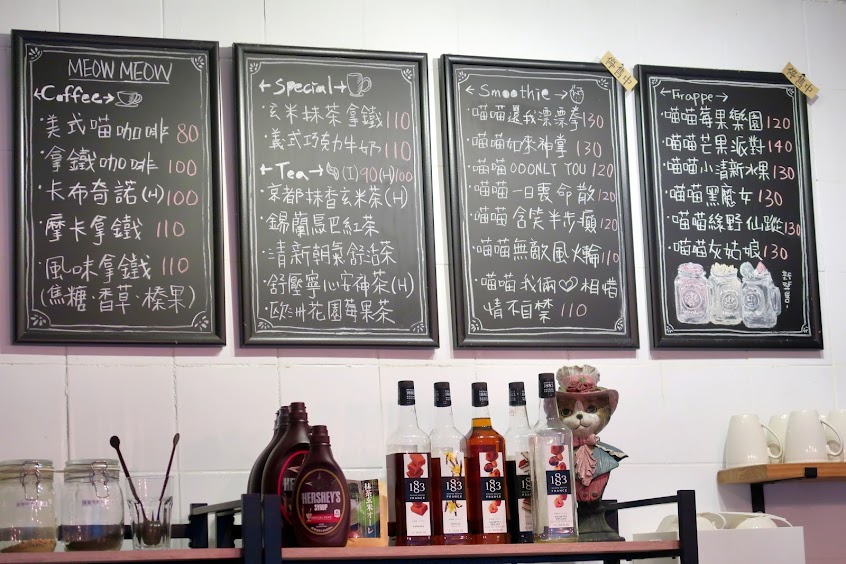 MEOW MEOW
Coffee
美式喵咖啡 80
拿鐵咖啡 100
卡布奇諾(H)100
摩卡拿鐵 110
風味拿鐵 110
(焦糖·香草·榛果)
Special
·玄米抹茶拿鐵 110
·義式巧克力牛奶 110
Tea (I)90(H)100
·京都抹香玄米茶(H)
·錫蘭烏巴紅茶
·清新朝氣舒活茶
·舒壓寧心安神茶(H)
·歐洲花園莓果茶
Smoothie
·喵喵還我漂漂拳130
·喵喵如來神掌 130
·喵喵OOONLY YOU 120
·喵喵一日喪命散120
·喵喵含笑半步癲120
·喵喵無敵風火輪110
·喵喵我倆♡相惜
情不自禁 110
售中
Frappe
·喵喵莓果樂園120
·喵喵芒果派對140
·喵喵小清新水果130
·喵喵黑魔女 130
·喵喵綠野仙蹤130
·喵喵灰姑娘130
售中
HERSHEY'S
SYRUP
抹茶玄米オーレ
1883
FRANCE
1883
FRANCE
1883
FRANCE
1883
1883
FRANCE